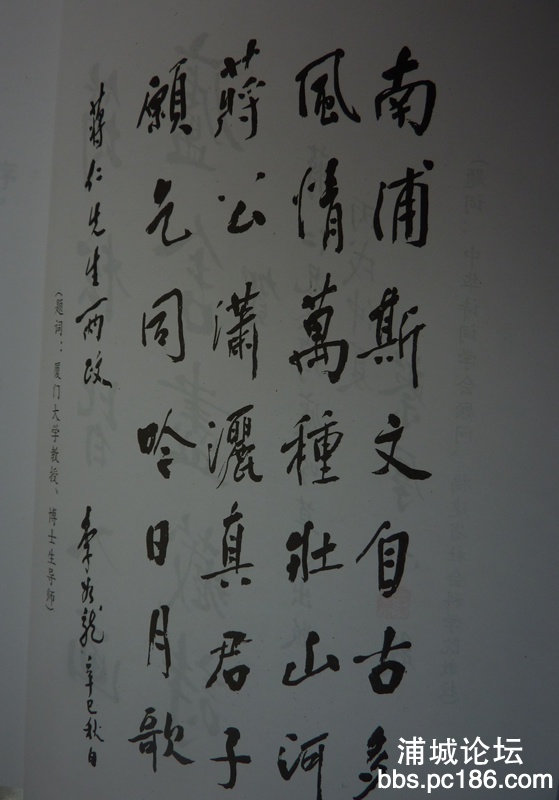 南浦斯文自古多
風情萬種壯山河
蔣公瀟灑真君子
願乞同吟日月歌
蔣仁先生两政
李如龍 辛巳秋日
（题词：厦门大学教授、博士生导师）
浦城论坛
bbs.pc186.com